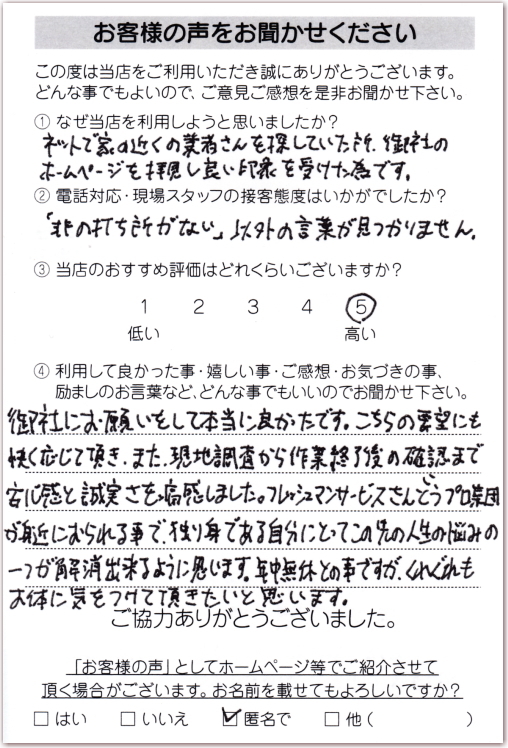 お客様の声をお聞かせください
この度は当店をご利用いただき誠にありがとうございます。
どんな事でもよいので、ご意見ご感想を是非お聞かせ下さい。
① なぜ当店を利用しようと思いましたか?
ネットで家の近くの業者さんを探していた所、御社の
ホームページを拝見し良い印象を受けた為です。
② 電話対応・現場スタッフの接客態度はいかがでしたか?
「非の打ち所がない」以外の言葉が見つかりません。
③ 当店のおすすめ評価はどれくらいございますか?
1 2 3 4 5
低い 高い
④ 利用して良かった事・嬉しい事・ご感想・お気づきの事、
励ましのお言葉など、どんな事でもいいのでお聞かせ下さい。
御社にお願いをして本当に良かたです。こちらの要望にも
快く応じて頂き、また、現地調査から作業終了後の確認まで
安心感と誠実さを痛感しました。フレッシュマンサービスさんというプロ集団
が身近におられる事で、独り身である自分にとってこの先の人生の悩みの
一つが解消出来るように思います。年中無休との事ですが、くれぐれも
お体に気をつけて頂きたいと思います。
ご協力ありがとうございました。
「お客様の声」としてホームページ等でご紹介させて
頂く場合がございます。お名前を載せてもよろしいですか?
□ はい □ いいえ ☑ 匿名で □ 他 ( )